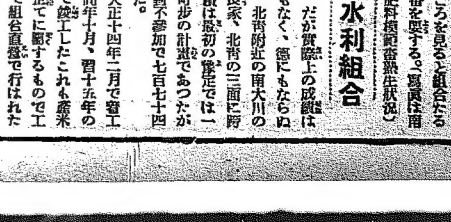 ころを見ると組合たる
を要する。寫眞は南
肥料模範畓熱生狀況)
水利組合
だが實際上の成績は
もなく、德にもならぬ
北靑附近の南大川の
家、北靑の三面に跨
は最初の豫定では一
町步の計畫であつたが
不參加で七百七十四
た。
大正十四年二月で工
年十月、翌十五年の
竣工したこれも產米
てに關するもので工
組合直營で行はれた